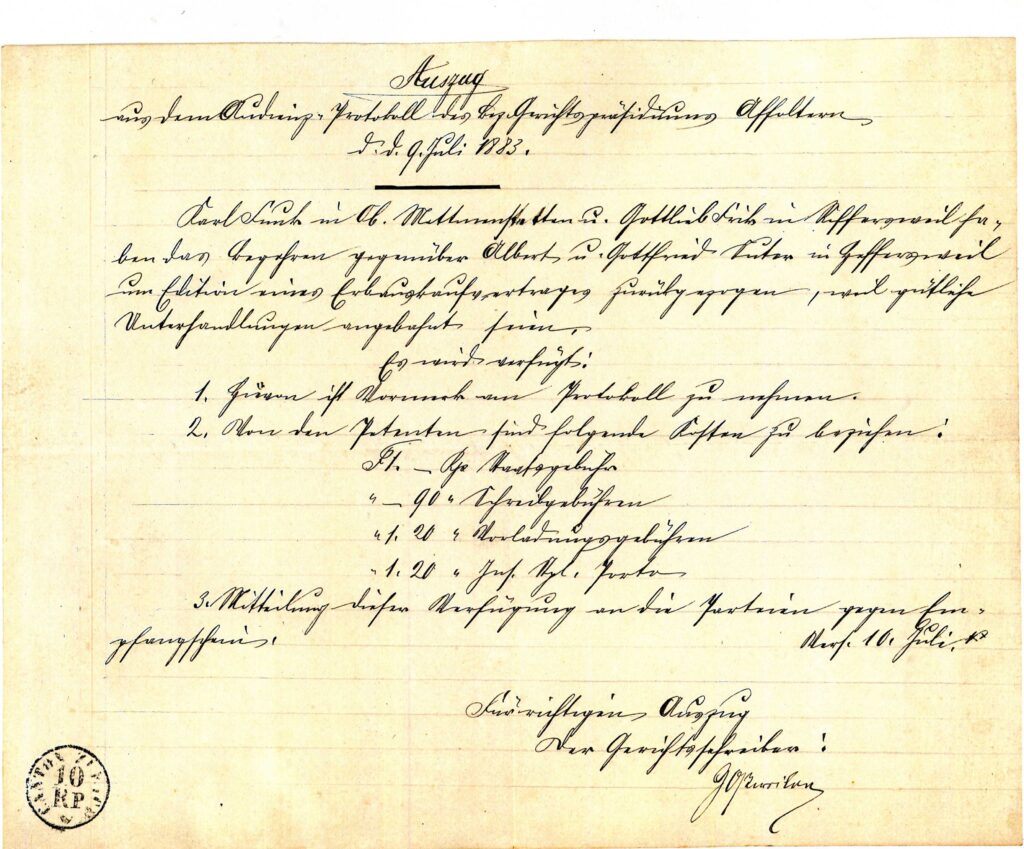 Auszug
aus dem Audienz-Protokoll des Bez. Gerichtspräsidiums Affoltern
d. d. 9. Juli 1883.
Karl Funk in Ob. Mettmenstetten u. Gottlieb Frik in Riffersweil ha-
ben das Begehren gegenüber Albert u. Gottfried Suter in Heffersweil
um Edition eines Erbauskaufvertrages zurükgezogen, weil gütliche
Unterhandlungen angebahnt seien.
Es wird verfügt:
1. Hievon ist Vormerk am Protokoll zu nehmen.
2. Von den Petenten sind folgende Kosten zu beziehen:
Fr. — Rp Staatsgebühr
" — 90 " Schreibgebühren
" 1. 20 " Vorladungsgebühren
" 1. 20 " Ins. Stpl. Porto
3. Mitteilung dieser Verfügung an die Parteien gegen Em-
pfangschein.
Vers. 10. Juli.
Für richtigen Auszug
Der Gerichtsschreiber:
CANTON ZÜRICH
10
RP